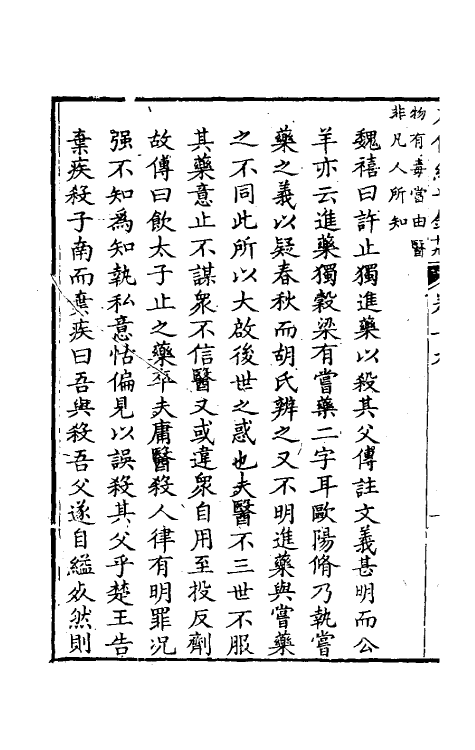 物有毒當由醫
非凡人所知
魏禧曰許止獨進藥以殺其父傳註文義甚明而公
羊亦云進藥獨穀梁有嘗藥二字耳歐陽脩乃執嘗
藥之義以疑春秋而胡氏辨之又不明進藥與嘗藥
之不同此所以大啟後世之惑也夫醫不三世不服
其藥意止不謀衆不信醫又或違衆自用至投反劑
故傳曰飲太子止之藥卒夫庸醫殺人律有明罪況
强不知爲知執私意怙偏見以誤殺其父乎楚王告
棄疾殺子南而棄疾曰吾與殺吾父遂自縊㱔然則